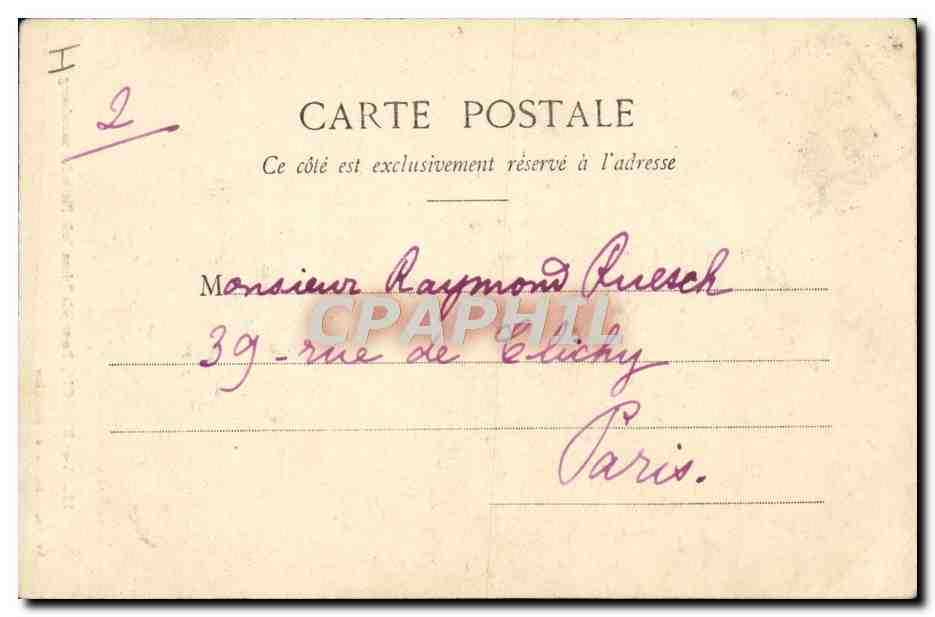 I
2
CARTE POSTALE
Ce côté est exclusivement réservé à l'adresse
Monsieur Raymond Ruesch
CPAPHIL
39 - rue de Clichy
Paris.